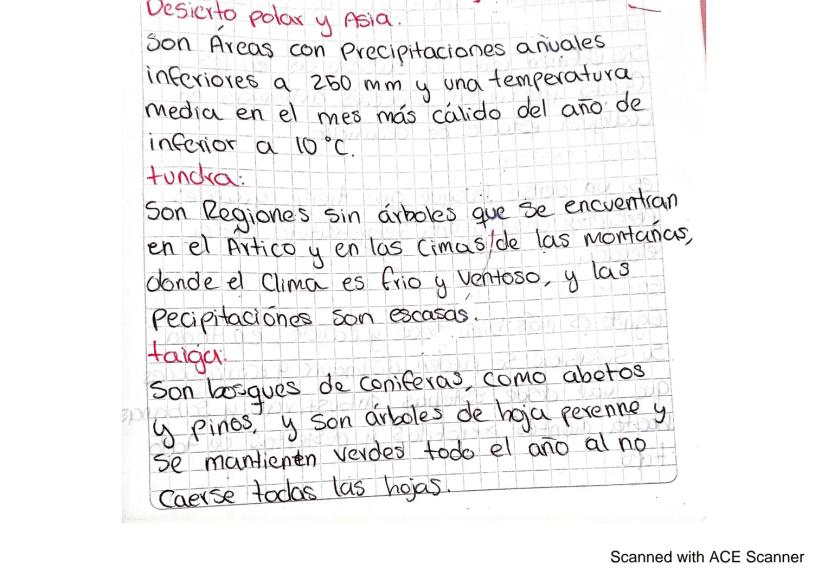 Desierto polar y Asia.
Son Áreas con Precipitaciones añuales
inferiores a 250 mm y una temperatura
media en el mes más cálido del año de
inferior a 10°C.
tundra:
Son Regiones sin árboles que se encuentran
en el Ártico y en las Cimas/de las Montañas,
donde el Clima es frio y Ventoso, y las
Pecipitaciónes son escasas.
taiga:
Son bosques de coniferas, como abetos
y pinos, y son árboles de hoja perenne y
se mantienen verdes todo el año al no
Caerse todas las hojas.
Scanned with ACE Scanner